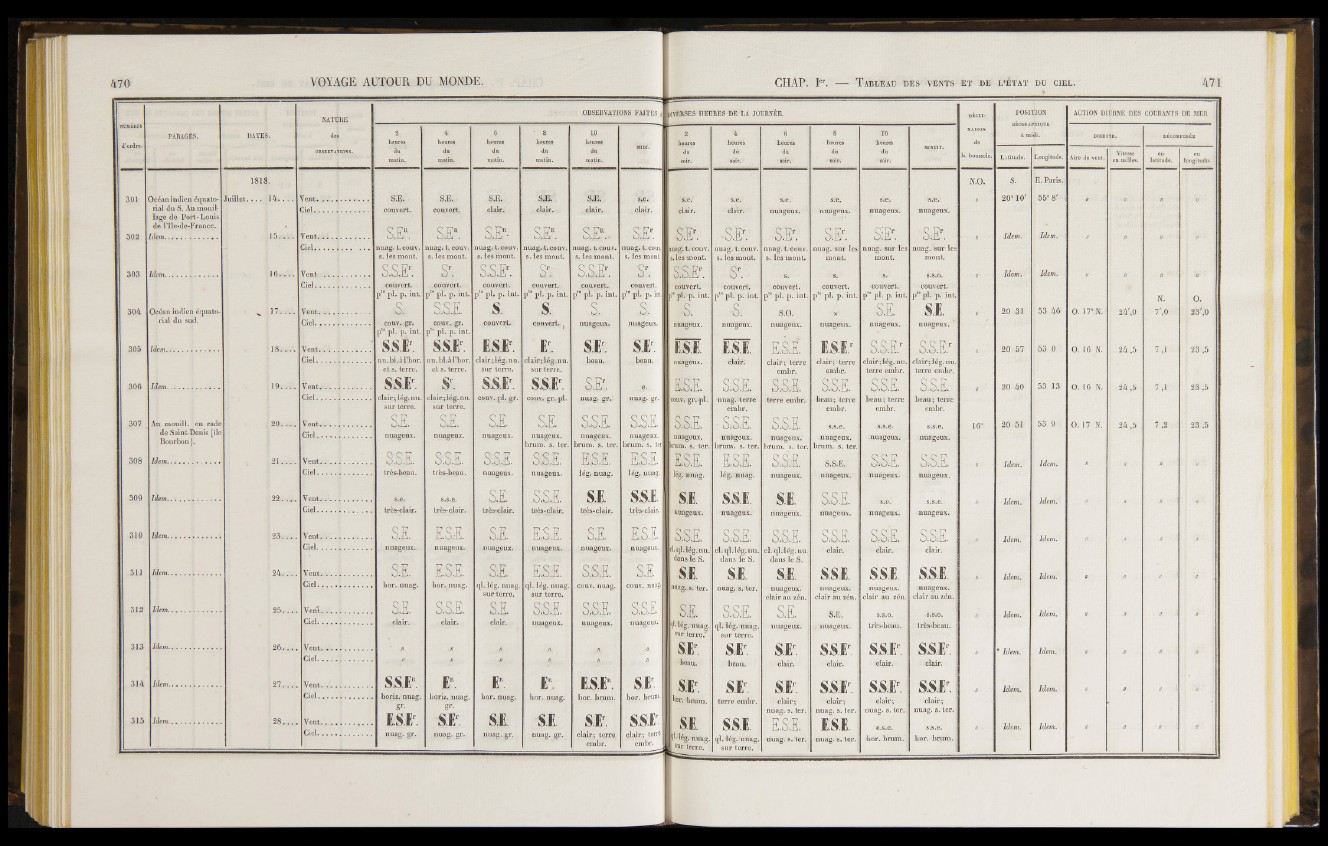 470 VOYAGE AUTOUR DU MONDE.
NUMÉROS d'ordre. PARAGES. DATES. NATURE des OBSERVATIONS. OBSERVATIONS FAITES
2 heures du matin. 4 heures du matin. 6 heures du matin. 8 heures du matin. 10 heures du matin. MIDI.
1818.
301 Océan indien équato- Juillet.... 14.... Vent. S.E. S.E. S.E. S.E. S.E. s.e.
rial du S. Au mouil- Ciel. couvert. couvert. clair. clair. clair. clair.
lage de Port-Louis
de l'Ile-de-France.
302 Idem. 15.... Vent. S.Eⁿ S.Eⁿ. S.Eⁿ. S.Eⁿ S.Eⁿ S.Eʳ.
Ciel. nuag. t. couv. nuag. t. couv. nuag. t. couv. nuag. t. couv. nuag. t. couv. nuag. t. couv.
s. les mont. s. les mont. s. les mont. s. les mont. s. les mont. s. les mont.
303 Idem. 16.... Vent. S.S.Eʳ Sʳ. S.S.Eʳ. Sʳ. S.S.Eʳ. Sʳ.
Ciel. couvert. couvert. couvert. couvert. couvert. couvert.
pᵗᵉ pl. p. int. pᵗᵉ pl. p. int. pᵗᵉ pl. p. int. pᵗᵉ pl. p. int. pᵗᵉ pl. p. int. pᵗᵉ pl. p. in
304 Océan indien équato- 17.... Vent. S. S.S.E. S. S. S. S.
rial du sud. Ciel. couv. gr. couv. gr. couvert. couvert. nuageux. nuageux.
pᵗᵉ pl. p. int. pᵗᵉ pl. p. int.
305 Idem. 18.... Vent. S.S.Eʳ. S.S.Eʳ. E.S.Eʳ. Eʳ. S.Eʳ. S.Eʳ.
Ciel. nu. bl. à l'hor. nu. bl. à l'hor. clair; lég. nu. clair; lég. nu. beau. beau.
et s. terre. et s. terre. sur terre. sur terre.
306 Idem. 19.... Vent. S.S.Eʳ. Sʳ. S.S.Eʳ. S.S.Eʳ. S.Eʳ. e.
Ciel. clair; lég. nu. clair; lég. nu. couv. pl. gr. couv. gr. pl. nuag. gr. nuag. gr.
sur terre. sur terre.
307 Au mouill. en rade 20.... Vent. S.E. S.E. S.E. S.E. S.S.E. S.S.E.
de Saint-Denis (île Ciel. nuageux. nuageux. nuageux. nuageux. nuageux. nuageux.
Bourbon). brum. s. ter. brum. s. ter. brum. s. te
308 Idem. 21.... Vent. S.S.E. S.S.E. S.S.E. S.S.E. E.S.E. E.S.E.
Ciel. très-beau. très-beau. nuageux. nuageux. lég. nuag. lég. nuag.
309 Idem. 22.... Vent. s.e. s.s.e. S.E. S.S.E. S.E. S.S.E.
Ciel. très-clair. très-clair. très-clair. très-clair. très-clair. très-clair.
310 Idem. 23.... Vent. S.E. E.S.E. S.E. E.S.E. S.E. E.S.E.
Ciel. nuageux. nuageux. nuageux. nuageux. nuageux. nuageux.
311 Idem. 24.... Vent. S.E. E.S.E. S.E. E.S.E. S.S.E. S.E.
Ciel. hor. nuag. hor. nuag. ql. lég. nuag. ql. lég. nuag. couv. nuag. couv. nuag.
sur terre. sur terre.
312 Idem. 25.... Vent. S.E. S.S.E. S.E. S.S.E. S.S.E. S.S.E.
Ciel. clair. clair. clair. nuageux. nuageux. nuageux.
313 Idem. 26.... Vent. " " " " " "
Ciel. " " " " " "
314 Idem. 27.... Vent. S.S.Eⁿ. Eⁿ. Eⁿ. Eⁿ. E.S.Eⁿ. S.Eʳ.
Ciel. horiz. nuag. horiz. nuag. hor. nuag. hor. nuag. hor. brum. hor. brum.
gr. gr.
315 Idem. 28.... Vent. E.S.Eʳ S.Eʳ S.E. S.E. S.Eʳ. S.S.Eʳ.
Ciel. nuag. gr. nuag. gr. nuag. gr. nuag. gr. clair; terre clair; terre
embr. embr.
CHAP. Iᵉʳ. — TABLEAU DES VENTS ET DE L'ÉTAT DU CIEL. 471
DIVERSES HEURES DE LA JOURNÉE. DÉCLINAISON de la boussole. POSITION GÉOGRAPHIQUE à midi. ACTION DIURNE DES COURANTS DE MER
DIRECTE. DÉCOMPOSÉE
2 heures du soir. 4 heures du soir. 6 heures du soir. 8 heures du soir. 10 heures du soir. MINUIT. Latitude. Longitude. Aire de vent. Vitesse en milles. en latitude. en longitude.
N.O. S. E. Paris.
s.e. s.e. s.e. s.e. s.e. s.e. " 20° 10' 55° 8' " " " "
clair. clair. nuageux. nuageux. nuageux. nuageux.
S.Eʳ S.Eʳ. S.Eʳ. S.Eʳ. S.Eʳ S.Eʳ. " Idem. Idem. " " " "
nuag. t. couv. nuag. t. couv. nuag. t. couv. nuag. sur les nuag. sur les nuag. sur les
s. les mont. s. les mont. s. les mont. mont. mont. mont.
S.S.Eʳ. Sʳ. s. s. s. s.s.o. " Idem. Idem. " " " "
couvert. couvert. couvert. couvert. couvert. couvert.
pᵗᵉ pl. p. int. pᵗᵉ pl. p. int. pᵗᵉ pl. p. int. pᵗᵉ pl. p. int. pᵗᵉ pl. p. int. pᵗᵉ pl. p. int. N. O.
S. S. S.O. " S.E. S.E. " 20 31 53 46 O. 17° N. 24',0 7',0 23',0
nuageux. nuageux. nuageux. nuageux. nuageux. nuageux.
E.S.E. E.S.E. E.S.E. E.S.Eʳ S.S.Eʳ S.S.Eʳ. " 20 57 53 0 O. 16 N. 24 ,5 7 ,1 23 ,5
nuageux. clair. clair; terre clair; terre clair; lég. nu. clair; lég. nu.
embr. embr. terre embr. terre embr.
E.S.E. S.S.E. S.S.E. S.S.E. S.S.E. S.S.E. " 20 40 53 13 O. 16 N. 24 ,5 7 ,1 23 ,5
couv. gr. pl. nuag. terre terre embr. beau; terre beau; terre beau; terre
embr. embr. embr. embr.
S.S.E. S.S.E. S.S.E. s.s.e. s.s.e. s.s.e. 16° 20 51 53 9 O. 17 N. 24 ,5 7 ,2 23 ,5
nuageux. nuageux. nuageux. nuageux. nuageux. nuageux.
brum. s. ter. brum. s. ter. brum. s. ter. brum. s. ter.
E.S.E. E.S.E. S.S.E. S.S.E. S.S.E. S.S.E. " Idem. Idem. " " " "
lég. nuag. lég. nuag. nuageux. nuageux. nuageux. nuageux.
S.E. S.S.E. S.E. S.S.E. s.e. s.s.e. " Idem. Idem. " " " "
nuageux. nuageux. nuageux. nuageux. nuageux. nuageux.
S.S.E. S.S.E. S.S.E. S.S.E. S.S.E. S.S.E. " Idem. Idem. " " " "
cl. ql. lég. nu. cl. ql. lég. nu. cl. ql. lég. nu. clair. clair. clair.
dans le S. dans le S. dans le S.
S.E. S.E. S.E. S.S.E. S.S.E. S.S.E. " Idem. Idem. " " " "
nuag. s. ter. nuag. s. ter. nuageux. nuageux. nuageux. nuageux.
clair au zén. clair au zén. clair au zén. clair au zén.
S.E. S.S.E. S.E. S.E. s.s.o. s.s.o. " Idem. Idem. " " " "
ql. lég. nuag. ql. lég. nuag. nuageux. nuageux. très-beau. très-beau.
sur terre. sur terre.
S.Eʳ S.Eʳ. S.Eʳ S.S.Eʳ S.S.Eʳ. S.S.Eʳ. " Idem. Idem. " " " "
beau. beau. clair. clair. clair. clair.
S.Eʳ. S.Eʳ. S.Eʳ. S.S.Eʳ. S.S.Eʳ. S.S.Eʳ. " Idem. Idem. " " " "
hor. brum. terre embr. clair; clair; clair; clair;
nuag. s. ter. nuag. s. ter. nuag. s. ter. nuag. s. ter.
S.E. S.S.E. E.S.E. E.S.E. e.s.e. s.s.e. " Idem. Idem. " " " "
ql. lég. nuag. ql. lég. nuag. nuag. s. ter. nuag. s. ter. hor. brum. hor. brum.
sur terre. sur terre.